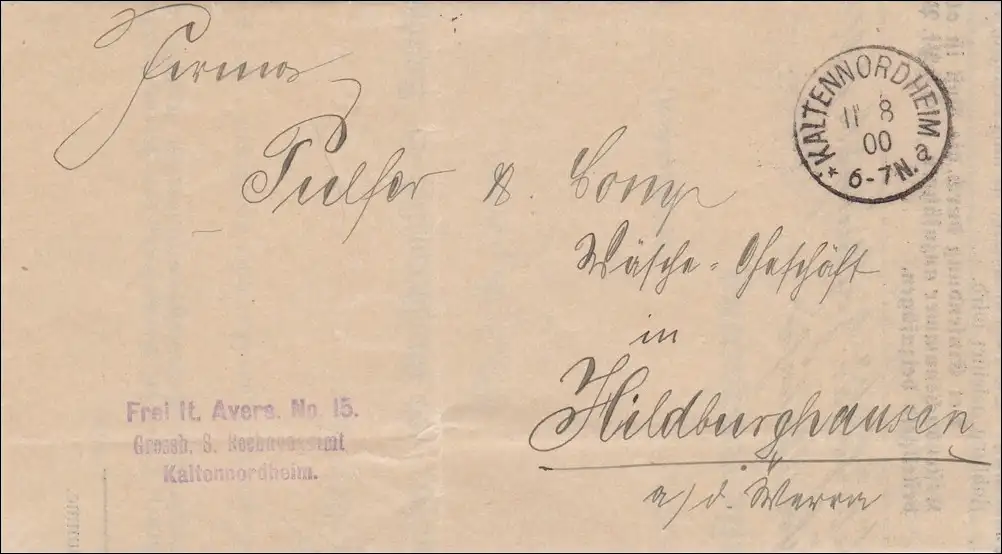 Firma
Pulfer & Comp
Wäsche-Geschäft
in
Hildburghausen
a/d. Werra
* KALTENNORDHEIM a
11 8
00
6-7N.
Frei lt. Avers. No. 15.
Grossh. S. Rechnungsamt
Kaltennordheim.